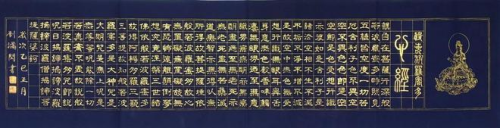 摩訶般若波羅蜜多
心經
觀自在菩薩行深般若波羅
蜜多時照見五蘊皆空度一
切苦厄舍利子色不異空空
不異色色即是空空即是色
受想行識亦復如是舍利子
是諸法空相不生不滅不垢
不淨不增不減是故空中無
色無受想行識無眼耳鼻舌
身意無色聲香味觸法無眼
界乃至無意識界無無明亦
無無明盡乃至無老死亦無
老死盡無苦集滅道無智亦
無得以無所得故菩提薩埵
依般若波羅蜜多故心無罣
礙無罣礙故無有恐怖遠離
顛倒夢想究竟涅槃三世諸
佛依般若波羅蜜多故得阿
耨多羅三藐三菩提故知般
若波羅蜜多是大神咒是大
明咒是無上咒是無等等咒
能除一切苦真實不虛故說
般若波羅蜜多咒即說咒曰
揭諦揭諦波羅揭諦波羅僧
揭諦菩提薩婆訶
歲次乙巳五月